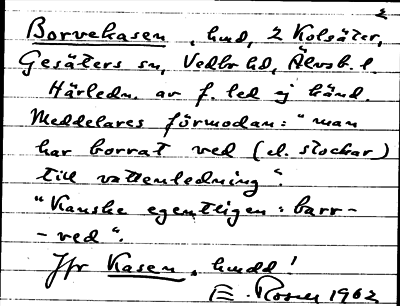 2
Borvekasen, hmd, 2 Kolsäter,
Gesäters sn, Vedbo hd, Älvsb. l.
Härledn. av f. led ej känd.
Meddelares förmodan: "man
har borrat ved (el. stockar)
till vattenledning".
"Kanske egentligen: barr-
-ved".
Jfr Kasen, hmdd!
E. Rosen 1962